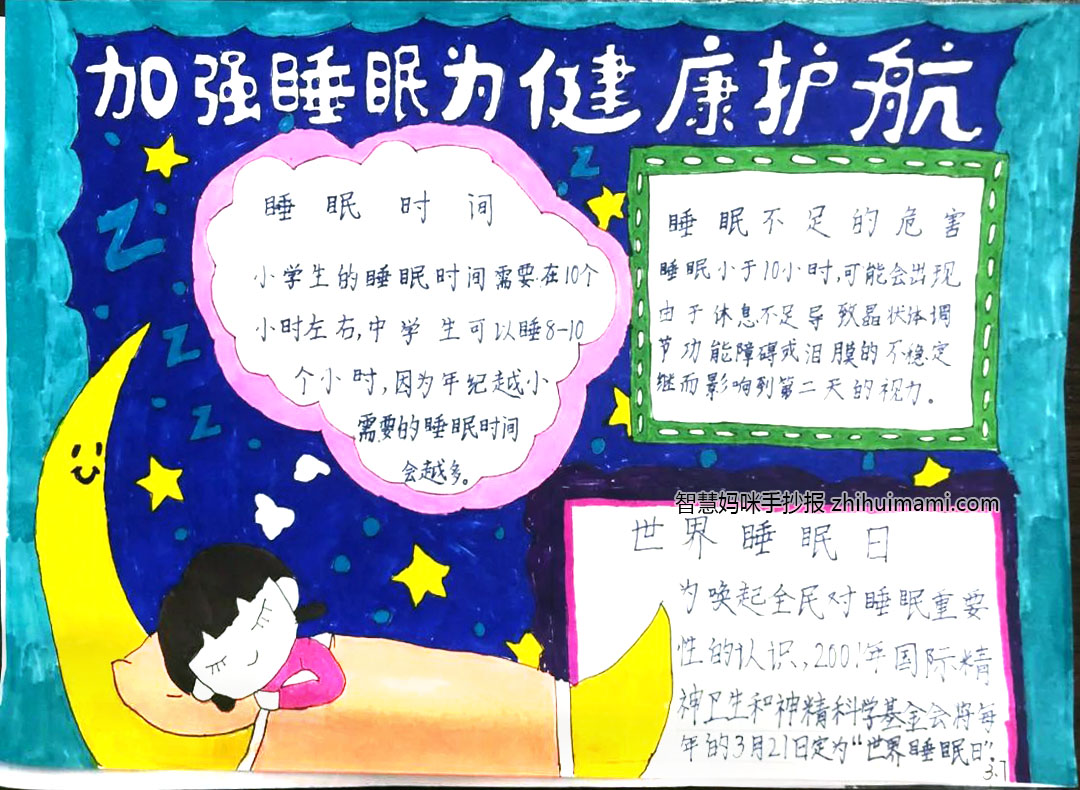 加强睡眠为健康护航
睡眠时间
小学生的睡眠时间需要在10个
小时左右,中学生可以睡8-10
个小时,因为年纪越小
需要的睡眠时间
会越多。
睡眠不足的危害
睡眠小于10小时,可能会出现
由于休息不足导致晶状体调
节功能障碍或泪膜的不稳定
继而影响到第二天的视力。
智慧妈咪手抄报 zhihuimami.com
世界睡眠日
为唤起全民对睡眠重要
性的认识,2001年国际精
神卫生和神精科学基金会将每
年的3月21日定为“世界睡眠日”。
3.7
Z
Z
Z
Z